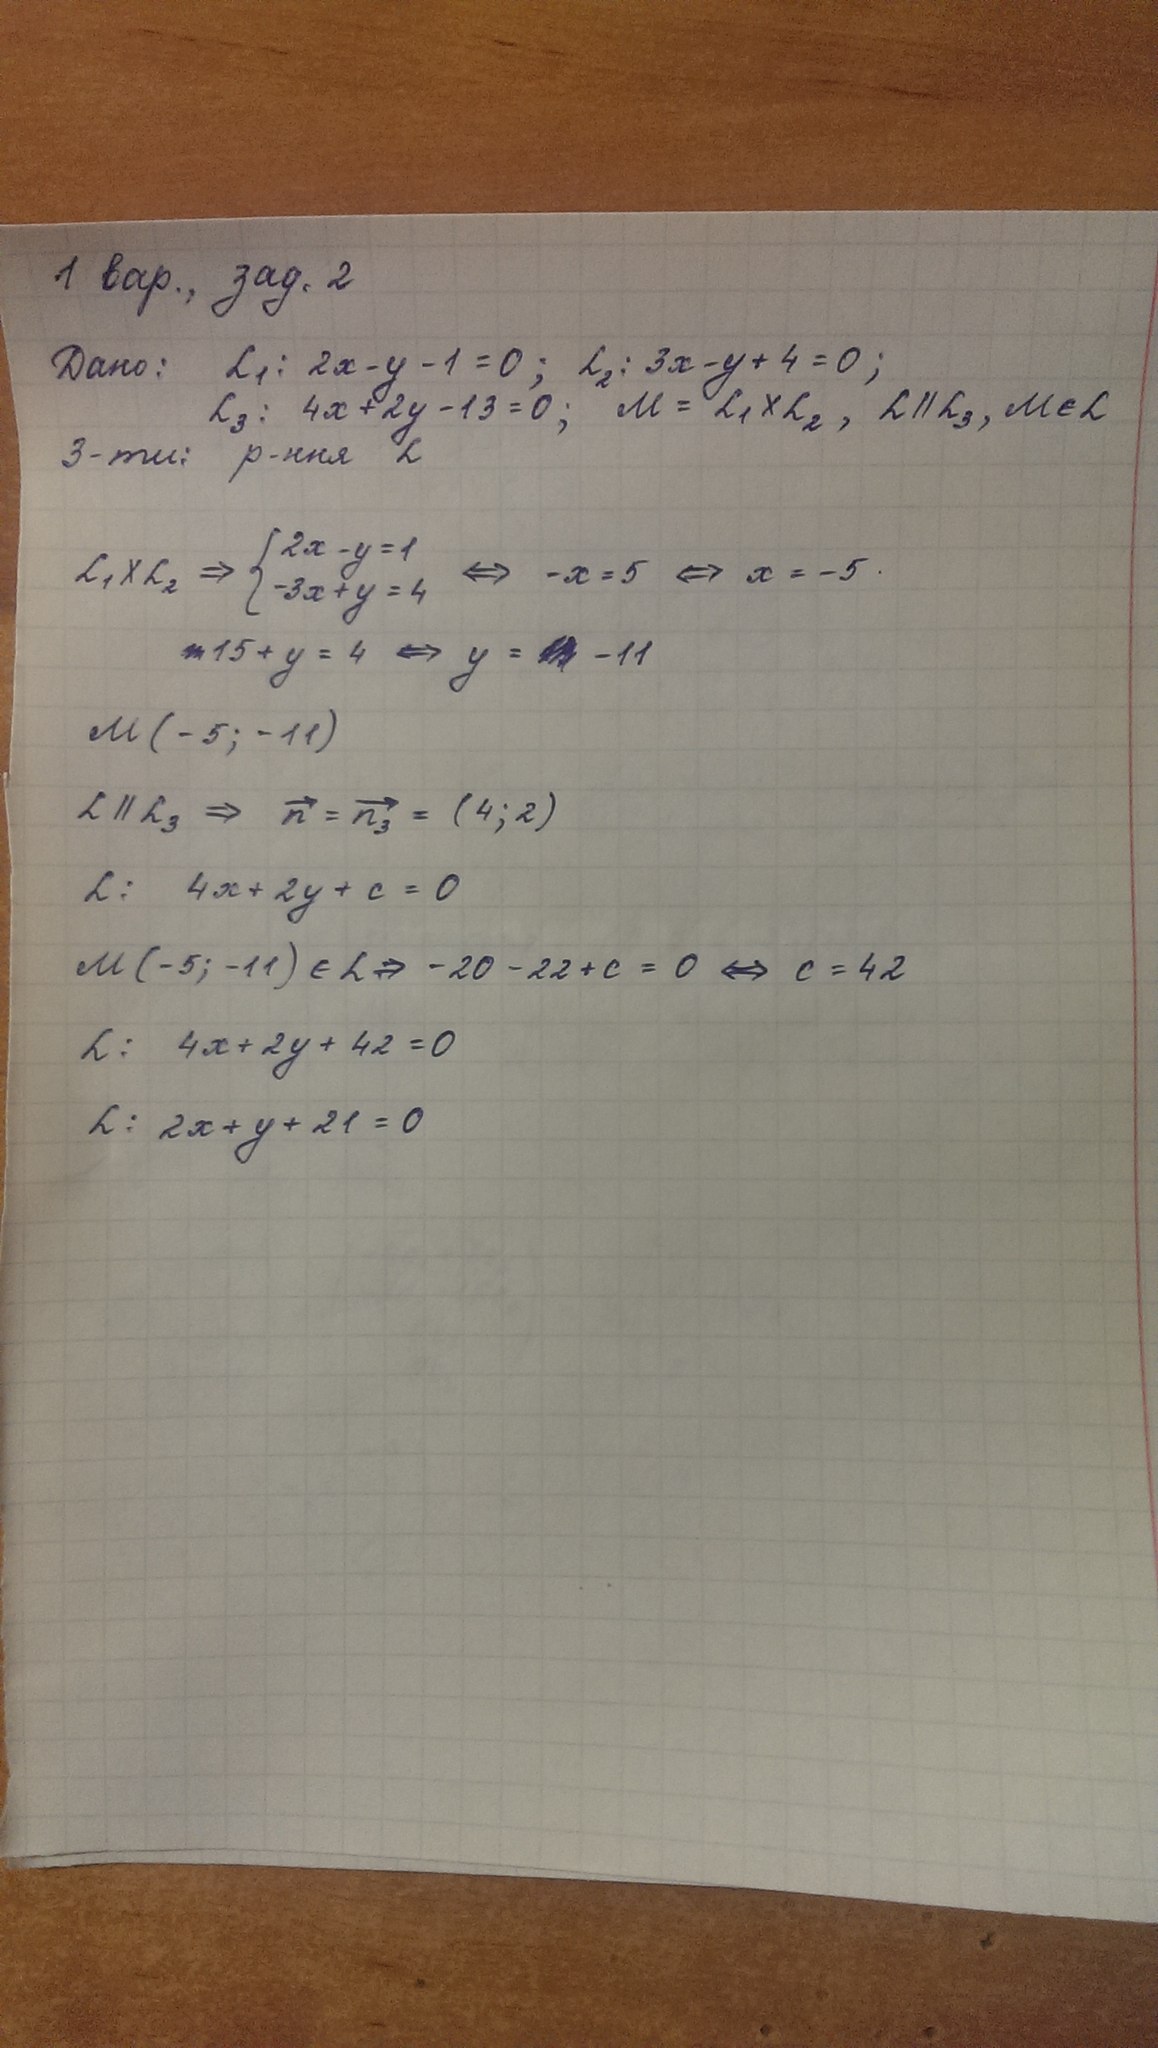 1 вар., зад. 2
Дано: L₁: 2x-y-1=0; L₂: 3x-y+4=0;
L₃: 4x+2y-13=0; M = L₁×L₂, L∥L₃, M∈L
З-ти: р-ння L
L₁×L₂ ⇒ { 2x-y=1
-3x+y=4 ⇔ -x=5 ⇔ x=-5.
15+y=4 ⇔ y= -11
M(-5; -11)
L∥L₃ ⇒ n⃗ = n₃⃗ = (4; 2)
L: 4x+2y+c=0
M(-5; -11)∈L⇒ -20-22+c=0 ⇔ c=42
L: 4x+2y+42=0
L: 2x+y+21=0